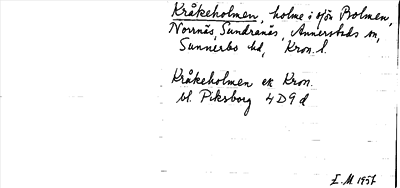 Kråkeholmen, holme i sjön Bolmen,
Norrnäs, Sundranäs, Annerstads sn,
Sunnerbo hd, Kron. l.
Kråkeholmen ek Kron.
bl. Piksborg 4D9d
E.M 1957